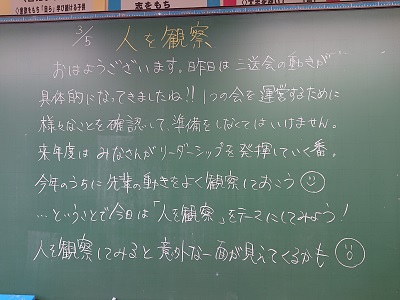 志をもち
3/5 人を観察
おはようございます。昨日は三送会の動きが
具体的になってきましたね!!1つの会を運営するために
様々なことを確認して、準備をしなくてはいけません。
来年度はみなさんがリーダーシップを発揮していく番。
今年のうちに先輩の動きをよく観察しておこう
…ということで今日は「人を観察」をテーマにしてみよう!
人を観察してみると意外な一面が見えてくるかも